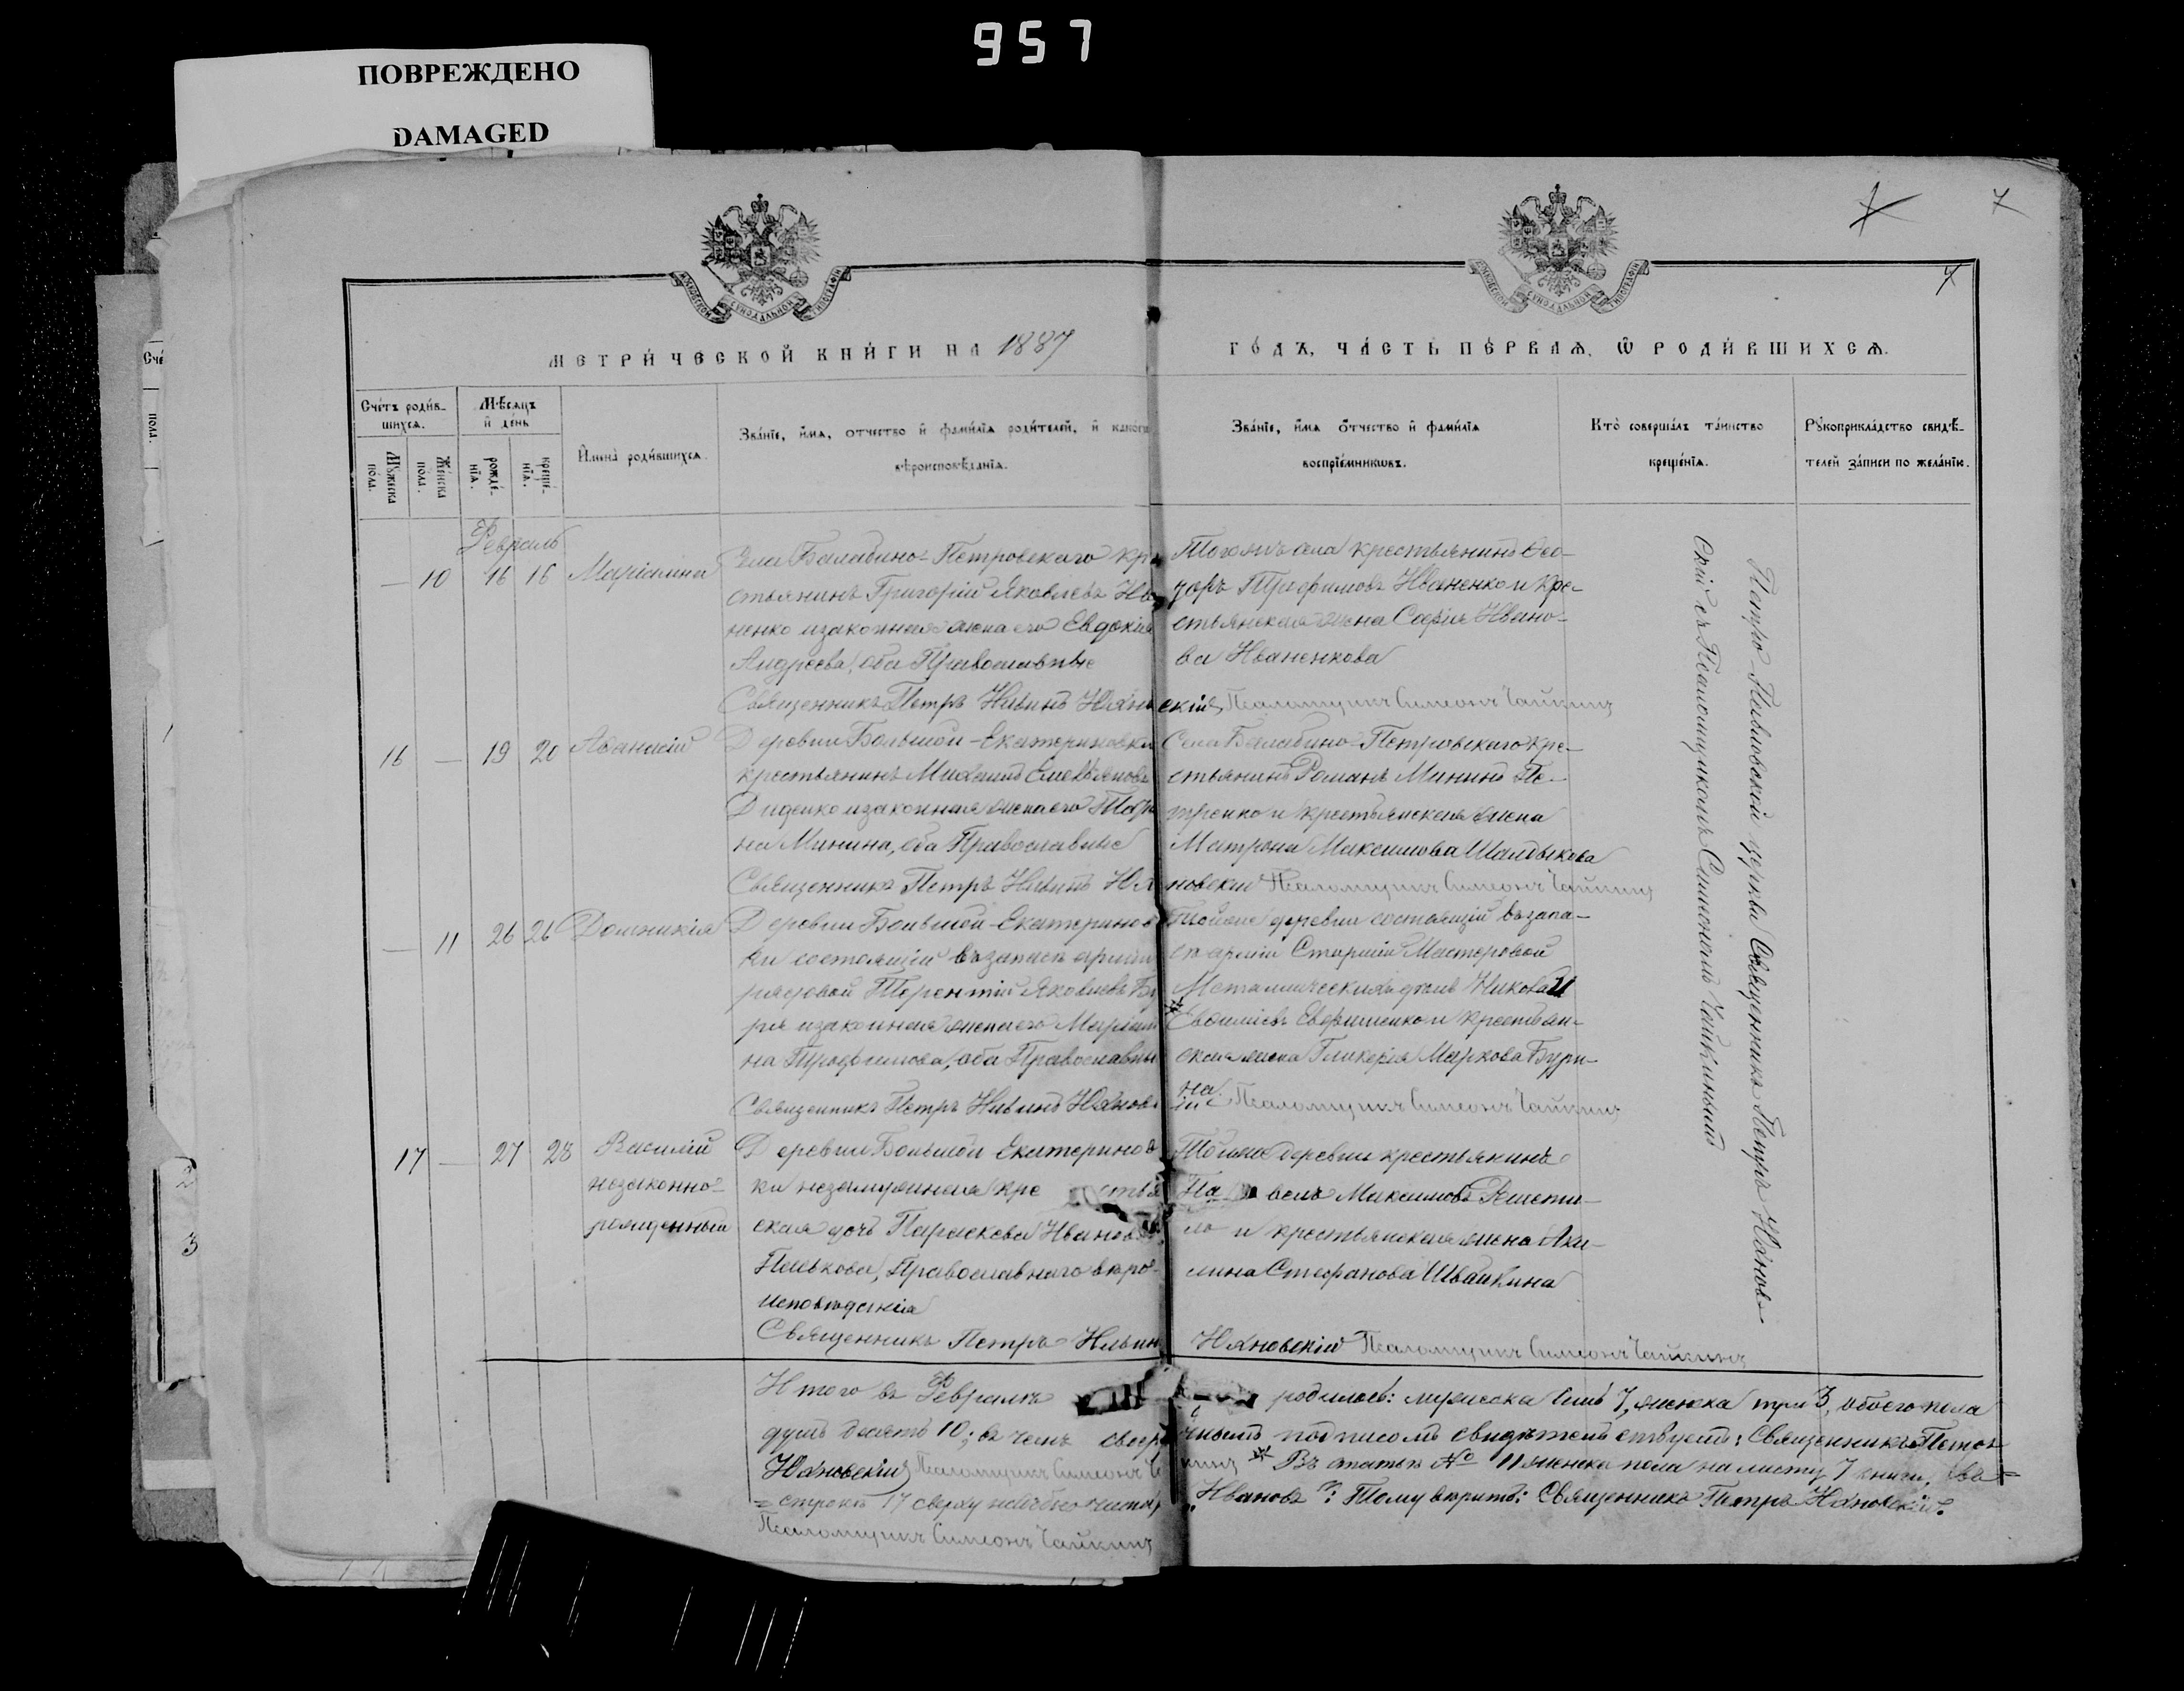 957
ПОВРЕЖДЕНО
DAMAGED
7
7
МЕТРИ́ЧЕСКОЙ КНИ́ГИ НА 1887
ГО́ДЪ, ЧА́СТЬ ПЕ́РВАѦ, Ѿ РОДИ́ВШИХСѦ.
Сче́тъ роди́в-
шихсѧ.
Мѣ́сѧцъ
и҆ де́нь
Мꙋ́жеска
по́ла.
Же́нска
по́ла.
рожде́-
нїѧ.
креще́-
нїѧ.
И҆мена̀ роди́вшихсѧ.
Зва́нїе, и҆́мѧ, о҆́тчество и҆ фами́лїѧ роди́телей, и҆ како́гѡ
вѣроисповѣ́данїѧ.
Зва́нїе, и҆́мѧ о҆́тчество и҆ фами́лїѧ
воспрїе́мникѡвъ.
Кто̀ соверша́лъ та́инство
креще́нїѧ.
Рꙋкоприкла́дство свидѣ́-
телей за́писи по жела́нїю.
Февраль
— 10 16 16 Маріамна
Села Балабино-Петровскаго кре
стьянинъ Григорій Яковлевъ Ива
ненко и законная жена его Евдокія
Андреева, оба Православные
Тогожъ села крестьянинъ Ѳео-
доръ Трофимовъ Иваненко и кре-
стьянская жена Софія Ивано-
ва Иваненкова
Священникъ Петръ Ильинъ Юхновскій Псаломщикъ Симеонъ Чайкинъ
16 — 19 20 Аѳанасій
Деревни Большой-Екатериновки
крестьянинъ Михаилъ Емельяновъ
Диденко и законная жена его
на Минина, оба Православные
Села Балабино-Петровскаго кре-
стьянинъ Романъ Мининъ Пе-
тренко и крестьянская жена
Матрона Максимова Шалдыкова
Священникъ Петръ Ильинъ Юхновскій Псаломщикъ Симеонъ Чайкинъ
— 11 26 26 Домникія
Деревни Большой-Екатеринов
ки состоящій въ запасѣ арміи
рядовой Терентій Яковлевъ Бу
ря и законная жена его Маріам
на Трофимова, оба Православные
Тойже деревни состоящій въ запа-
сѣ арміи Старшій Мастеровой
Металлическихъ дѣлъ Никола
* Евфименко и крестьян-
ская жена Гликерія Маркова Бури-
на
Священникъ Петръ Ильинъ Юхнов Псаломщикъ Симеонъ Чайкинъ
17 — 27 28 Василій
незаконно-
рожденный
Деревни Большой Екатеринов
ки незамужняя кре стья
ская дочь Параскева Иванова
Панькова, Православнаго вѣро-
исповѣданія
Тойже деревни крестьянинъ
Па велъ Максимовъ
ло и крестьянская жена Аки-
лина Стефанова Швайкина
Священникъ Петръ Ильинъ Юхновскій Псаломщикъ Симеонъ Чайкинъ
Петро-Павловской церкви Священникъ Петръ Юхнов-
скій съ Псаломщикомъ Симеономъ Чайкинымъ
Итого въ Февралѣ родилось: мужеска семь 7, женска три 3, обоего пола
душъ десять 10; въ чемъ своеру чнымъ подписомъ свидѣтельствуемъ: Священникъ Петръ
Юхновскій Псаломщикъ Симеонъ Чайкинъ * Въ статьѣ № 11 женска пола на листу 7 книги, въ
= строкѣ 17 сверху Ивановъ": Тому вѣрить: Священникъ Петръ Юхновскій.
Псаломщикъ Симеонъ Чайкинъ
2
3